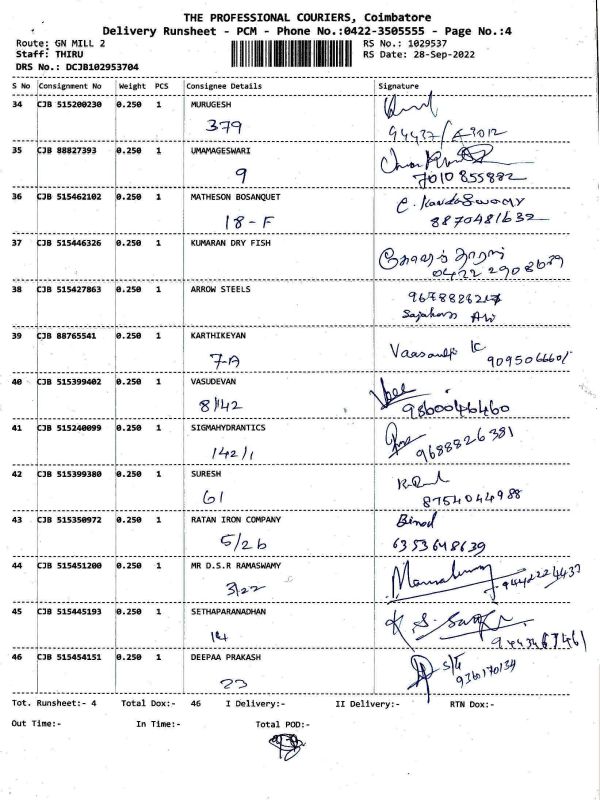 THE PROFESSIONAL COURIERS, Coimbatore
Delivery Runsheet - PCM - Phone No.:0422-3505555 - Page No.:4
Route: GN MILL 2 RS No.: 1029537
Staff: THIRU RS Date: 28-Sep-2022
DRS No.: DCJB102953704
S No Consignment No Weight PCS Consignee Details Signature
34 CJB 515200230 0.250 1 MURUGESH
379
35 CJB 88827393 0.250 1 UMAMAGESWARI
9 7010855882
36 CJB 515462102 0.250 1 MATHESON BOSANQUET C. Kandaswamy
18-F 8870481632
37 CJB 515446326 0.250 1 KUMARAN DRY FISH
0422 2908679
38 CJB 515427863 0.250 1 ARROW STEELS
39 CJB 88765541 0.250 1 KARTHIKEYAN
7-A
40 CJB 515399402 0.250 1 VASUDEVAN
8/142 9860046460
41 CJB 515240099 0.250 1 SIGMAHYDRANTICS
142/1 9688826381
42 CJB 515399380 0.250 1 SURESH
61 8754044988
43 CJB 515350972 0.250 1 RATAN IRON COMPANY Binod
5/26 6353648639
44 CJB 515451200 0.250 1 MR D.S.R RAMASWAMY
3/22 9442224437
45 CJB 515445193 0.250 1 SETHAPARANADHAN
14 9443467461
46 CJB 515454151 0.250 1 DEEPAA PRAKASH
23
Tot. Runsheet:- 4 Total Dox:- 46 I Delivery:- II Delivery:- RTN Dox:-
Out Time:- In Time:- Total POD:-